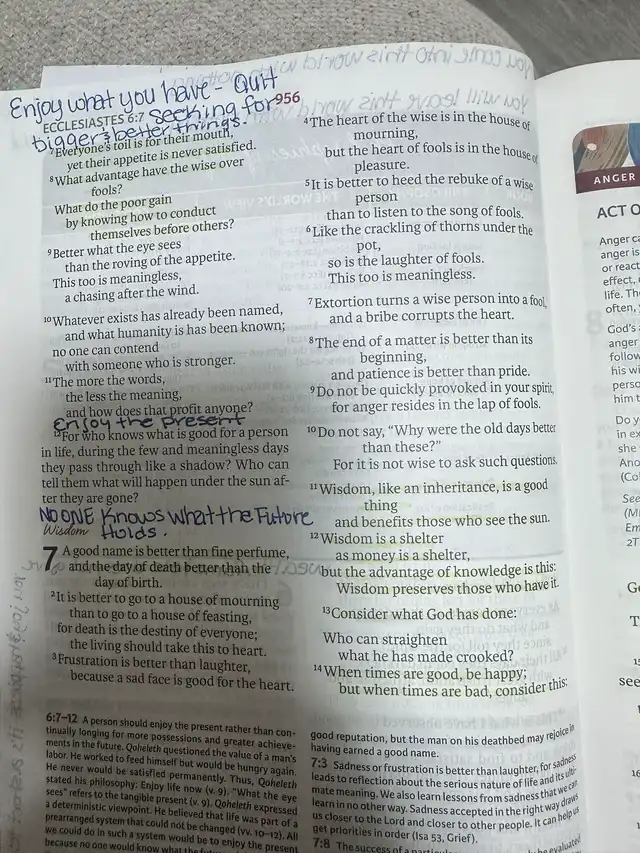 Enjoy what you have - Quit
seeking for
bigger & better things.
956
ECCLESIASTES 6:7
7Everyone's toil is for their mouth,
yet their appetite is never satisfied.
8What advantage have the wise over
fools?
What do the poor gain
by knowing how to conduct
themselves before others?
9Better what the eye sees
than the roving of the appetite.
This too is meaningless,
a chasing after the wind.
10Whatever exists has already been named,
and what humanity is has been known;
no one can contend
with someone who is stronger.
11The more the words,
the less the meaning,
and how does that profit anyone?
Enjoy the present
12For who knows what is good for a person
in life, during the few and meaningless days
they pass through like a shadow? Who can
tell them what will happen under the sun af-
ter they are gone?
NO ONE Knows what the Future
Holds.
Wisdom
7 A good name is better than fine perfume,
and the day of death better than the
day of birth.
2It is better to go to a house of mourning
than to go to a house of feasting,
for death is the destiny of everyone;
the living should take this to heart.
3Frustration is better than laughter,
because a sad face is good for the heart.
6:7–12 A person should enjoy the present rather than con-
tinually longing for more possessions and greater achieve-
ments in the future. Qoheleth questioned the value of a man's
labor. He worked to feed himself but would be hungry again.
He never would be satisfied permanently. Thus, Qoheleth
stated his philosophy: Enjoy life now (v. 9). "What the eye
sees" refers to the tangible present (v. 9). Qoheleth expressed
a deterministic viewpoint. He believed that life was part of a
prearranged system that could not be changed (vv. 10–12). All
we could do in such a system would be to enjoy the present
because no one would know what the
4The heart of the wise is in the house of
mourning,
but the heart of fools is in the house of
pleasure.
5It is better to heed the rebuke of a wise
person
than to listen to the song of fools.
6Like the crackling of thorns under the
pot,
so is the laughter of fools.
This too is meaningless.
7Extortion turns a wise person into a fool,
and a bribe corrupts the heart.
8The end of a matter is better than its
beginning,
and patience is better than pride.
9Do not be quickly provoked in your spirit,
for anger resides in the lap of fools.
10Do not say, "Why were the old days better
than these?"
For it is not wise to ask such questions.
11Wisdom, like an inheritance, is a good
thing
and benefits those who see the sun.
12Wisdom is a shelter
as money is a shelter,
but the advantage of knowledge is this:
Wisdom preserves those who have it.
13Consider what God has done:
Who can straighten
what he has made crooked?
14When times are good, be happy;
but when times are bad, consider this:
good reputation, but the man on his deathbed may rejoice in
having earned a good name.
7:3 Sadness or frustration is better than laughter, for sadness
leads to reflection about the serious nature of life and its ulti-
mate meaning. We also learn lessons from sadness that we can
learn in no other way. Sadness accepted in the right way draws
us closer to the Lord and closer to other people. It can help us
get priorities in order (Isa 53, Grief).
7:8 The success of a
ANGER
ACT O
Anger ca
anger is
or react
effect,
life. Th
often,
God's
anger
follow
his wi
perso
him t
Do y
in ex
she
And
(Col
See
(M
Em
2T
G
T
15
see
16